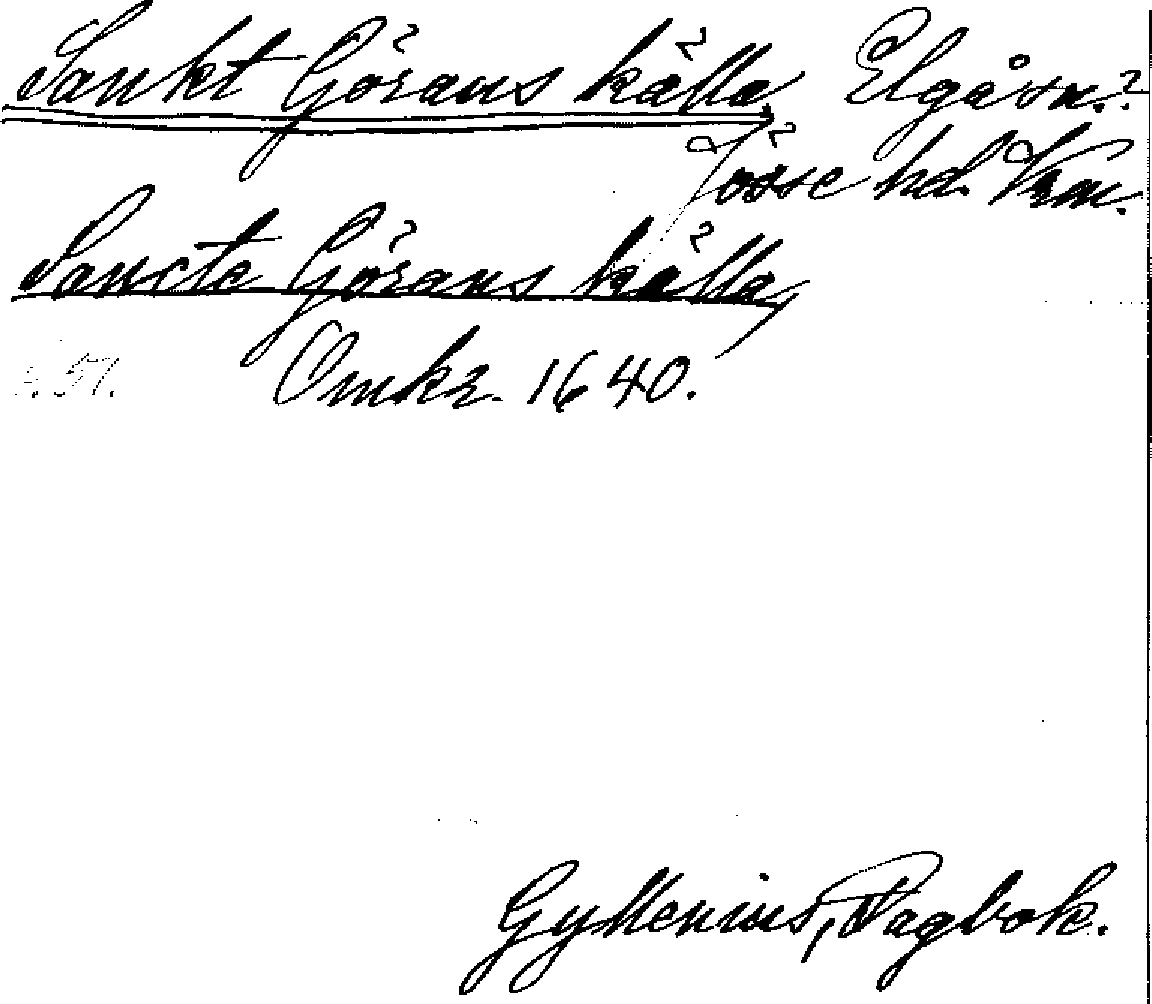 Sankt Görans källa, Elgå sn.?
Jösse hd. Vrm.
Sancte Görans källa,
s. 51. Omkr. 1640.
Gyllenius, Dagbok.